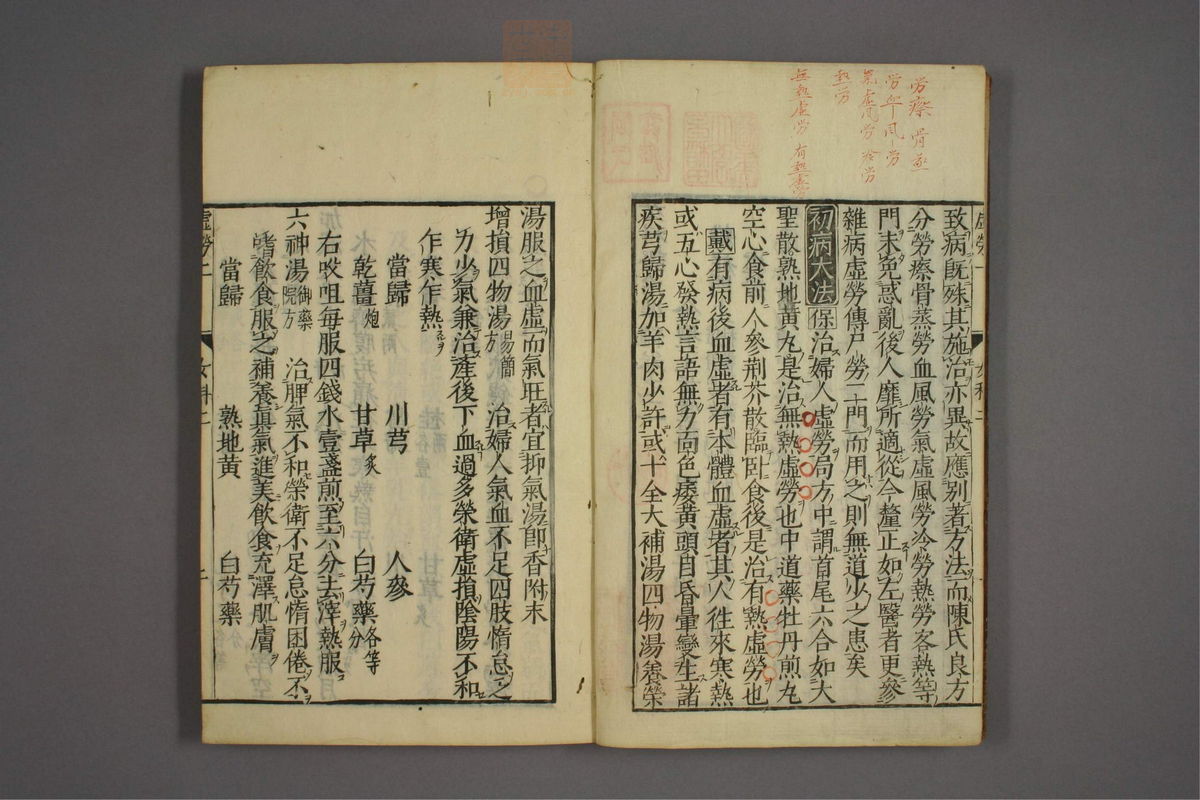 労瘵 骨蒸
労血風労
氣虚風労 冷労
熱労
無熱虚労 有熱虚労
致病既殊其施治亦異故應別著方法而陳氏良方
分勞瘵骨蒸勞血風勞氣虛風勞冷勞熱勞客熱等
門未免惑亂後人靡所適從今釐正如左醫者更參
雜病虛勞傳尸勞二門而用之則無道少之患矣
初病大法 保治婦人虛勞局方中謂首尾六合如大
聖散熟地黃丸是治無熱虛勞也中道藥牡丹煎丸
空心食前人參荆芥散臨臥食後是治有熱虛勞也
戴有病後血虛者有本體血虛者其人往來寒熱
或五心發熱言語無力面色痿黃頭目昏暈變生諸
疾芎歸湯加羊肉少許或十全大補湯四物湯養榮
湯服之血虛而氣旺者宜抑氣湯即香附末
增損四物湯 易簡方 治婦人氣血不足四肢惰怠乏
力少氣兼治產後下血過多榮衛虛損陰陽不和
乍寒乍熱
當歸 川芎 人參
乾薑炮 甘草炙 白芍藥各等分
右㕮咀每服四錢水壹盞煎至六分去滓熱服
六神湯 御藥院方 治脾氣不和榮衛不足怠惰困倦不
嗜飲食服之補養眞氣進美飲食充澤肌膚
當歸 熟地黃 白芍藥
虛勞二 女科二